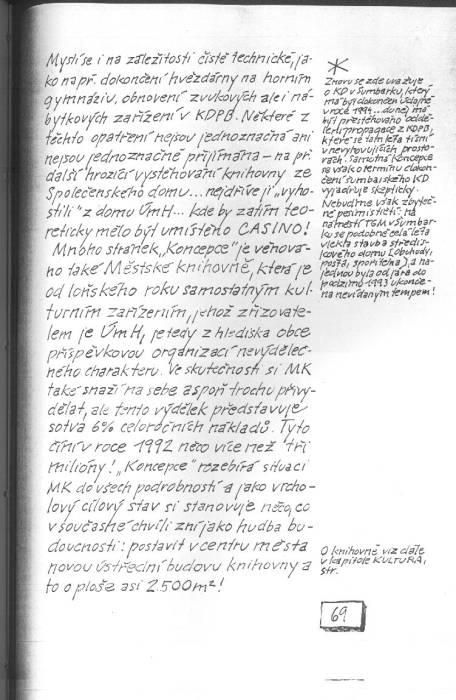 Myslí se i na záležitosti čistě technické, ja-
ko např. dokončení hvězdárny na horním
gymnáziu, obnovení zvukových ale i ná-
bytkových zařízení v KDPB. Některé z
těchto opatření nejsou jednoznačná ani
nejsou jednoznačně přijímána – na př.
další hrozící vystěhování knihovny ze
Společenského domu... nejdříve ji "vyho-
stili" z domu ÚmH... kde by zatím teo-
reticky mělo být umístěno CASINO!
Mnoho stránek "Koncepce" je věnová-
no také Městské knihovně, která je
od loňského roku samostatným kul-
turním zařízením, jehož zřizovate-
lem je ÚmH, je tedy z hlediska obce
příspěvkovou organizací nevýděleč-
ného charakteru. Ve skutečnosti si MK
také snaží na sebe aspoň trochu přivy-
dělat, ale tento výdělek představuje
sotva 6% celoročních nákladů. Tyto
činí v roce 1992 něco více než tři
milióny! "Koncepce" rozebírá situaci
MK do všech podrobností a jako vrcho-
lový cílový stav si stanovuje něco, co
v současné chvíli zní jako hudba bu-
doucnosti: postavit v centru města
novou ústřední budovu knihovny a
to o ploše asi 2.500 m²!
*
Znovu se zde uvažuje
o KD v Šumbarku, který
má být dokončen údajně
v roce 1994... do něj má
být přestěhováno oddě-
lení propagace z KDPB,
které se tam léta tísní
v nevyhovujících prosto-
rách. Samotná Koncepce
se však o termínu dokon-
čení šumbarského KD
vyjadřuje skepticky.
Nebuďme však zbyteč-
ně pesimističtí: na
náměstí TGM v Šumbar-
ku se podobně celá léta
vlekla stavba středis-
kového domu (obchody,
pošta, spořitelna), a na-
jednou byla od jara do
podzimu 1993 ukonče-
na nevídaným tempem!
O knihovně viz dále
v kapitole KULTURA,
str.
69